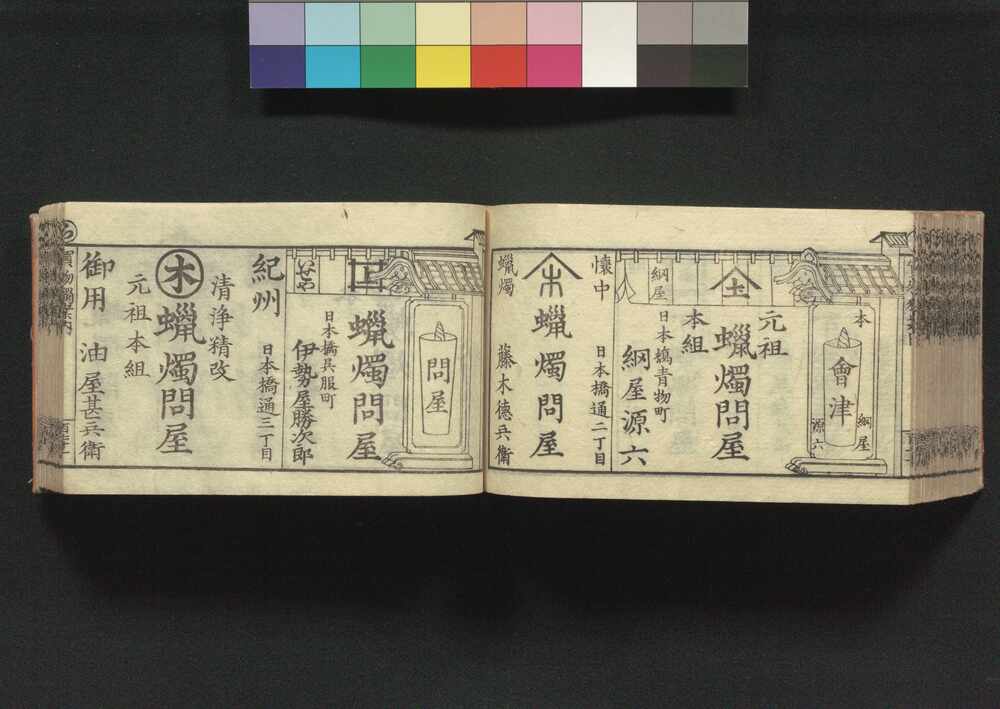 本
會津
綱屋
源六
元祖
本組
蠟燭問屋
日本橋青物町
綱屋源六
綱屋
懐中
蠟燭
本
蠟燭問屋
日本橋通二丁目
藤木德兵衛
問屋
蠟燭問屋
日本橋呉服町
伊勢屋勝次郎
いせや
紀州
日本橋通三丁目
清浄精改
木
蠟燭問屋
元祖本組
御用
油屋甚兵衛